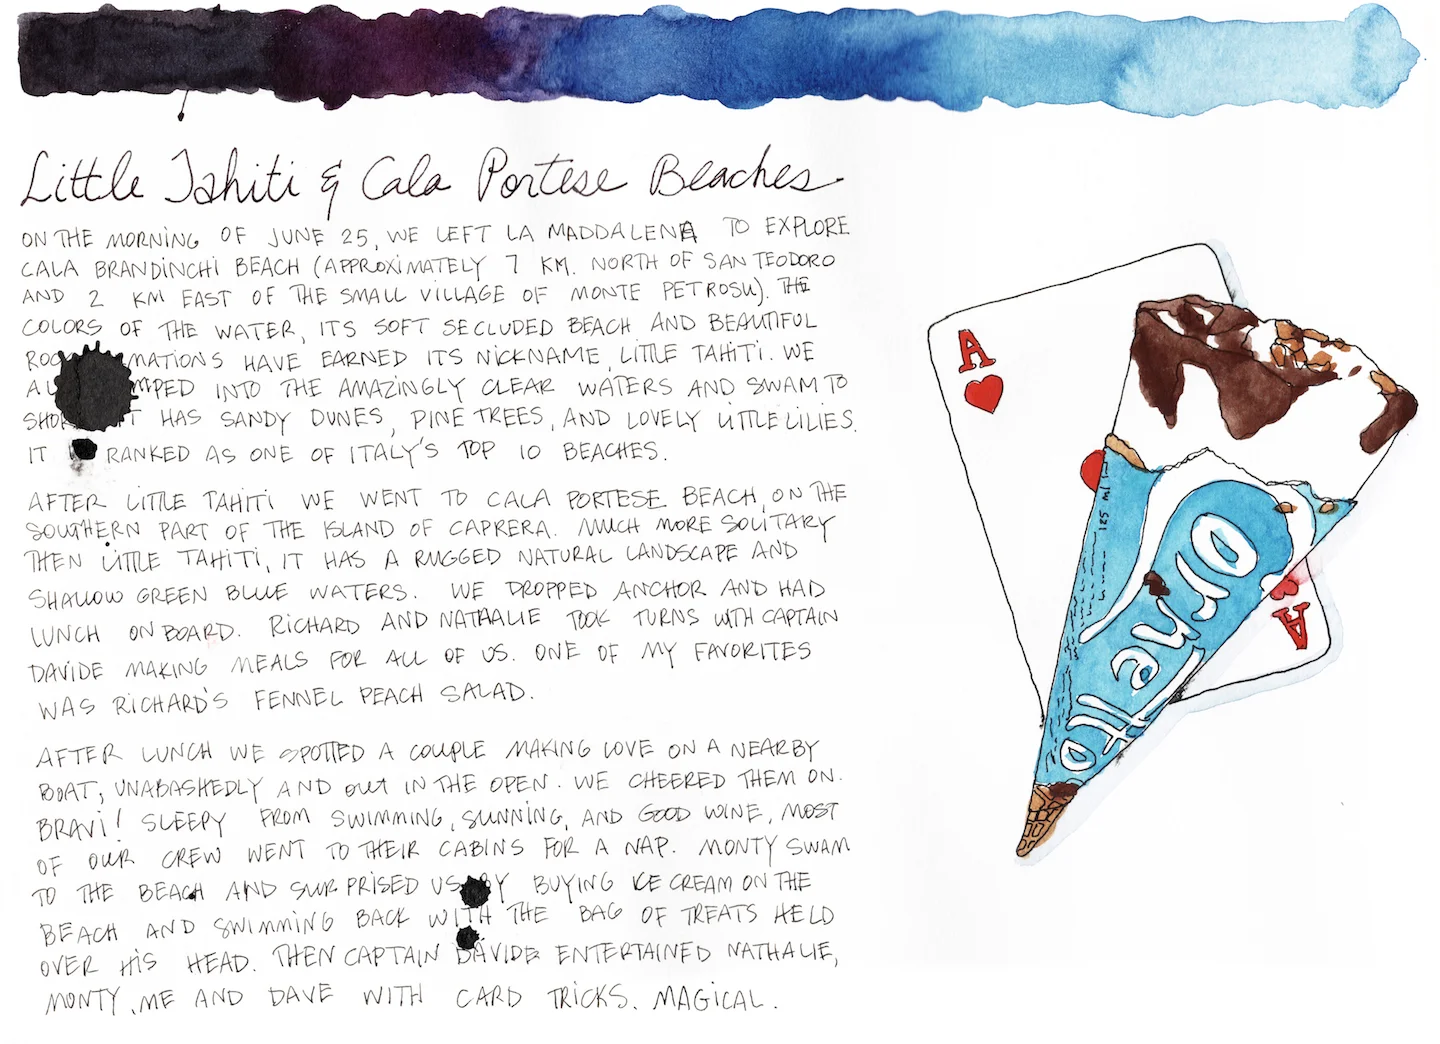 Little Tahiti & Cala Portese Beaches
ON THE MORNING OF JUNE 25, WE LEFT LA MADDALENA TO EXPLORE
CALA BRANDINCHI BEACH (APPROXIMATELY 7 KM. NORTH OF SAN TEODORO
AND 2 KM EAST OF THE SMALL VILLAGE OF MONTE PETROSU). THE
COLORS OF THE WATER, ITS SOFT SECLUDED BEACH AND BEAUTIFUL
HAVE EARNED ITS NICKNAME, LITTLE TAHITI. WE
INTO THE AMAZINGLY CLEAR WATERS AND SWAM TO
HAS SANDY DUNES, PINE TREES, AND LOVELY LITTLE LILIES.
IT RANKED AS ONE OF ITALY'S TOP 10 BEACHES.
AFTER LITTLE TAHITI WE WENT TO CALA PORTESE BEACH, ON THE
SOUTHERN PART OF THE ISLAND OF CAPRERA. MUCH MORE SOLITARY
THEN LITTLE TAHITI, IT HAS A RUGGED NATURAL LANDSCAPE AND
SHALLOW GREEN BLUE WATERS. WE DROPPED ANCHOR AND HAD
LUNCH ON BOARD. RICHARD AND NATHALIE TOOK TURNS WITH CAPTAIN
DAVIDE MAKING MEALS FOR ALL OF US. ONE OF MY FAVORITES
WAS RICHARD'S FENNEL PEACH SALAD.
AFTER LUNCH WE SPOTTED A COUPLE MAKING LOVE ON A NEARBY
BOAT, UNABASHEDLY AND OUT IN THE OPEN. WE CHEERED THEM ON.
BRAVI! SLEEPY FROM SWIMMING, SUNNING, AND GOOD WINE, MOST
OF OUR CREW WENT TO THEIR CABINS FOR A NAP. MONTY SWAM
TO THE BEACH AND SURPRISED US BY BUYING ICE CREAM ON THE
BEACH AND SWIMMING BACK WITH THE BAG OF TREATS HELD
OVER HIS HEAD. THEN CAPTAIN DAVIDE ENTERTAINED NATHALIE,
MONTY, ME AND DAVE WITH CARD TRICKS. MAGICAL.
A
125 ml
ornetto
A